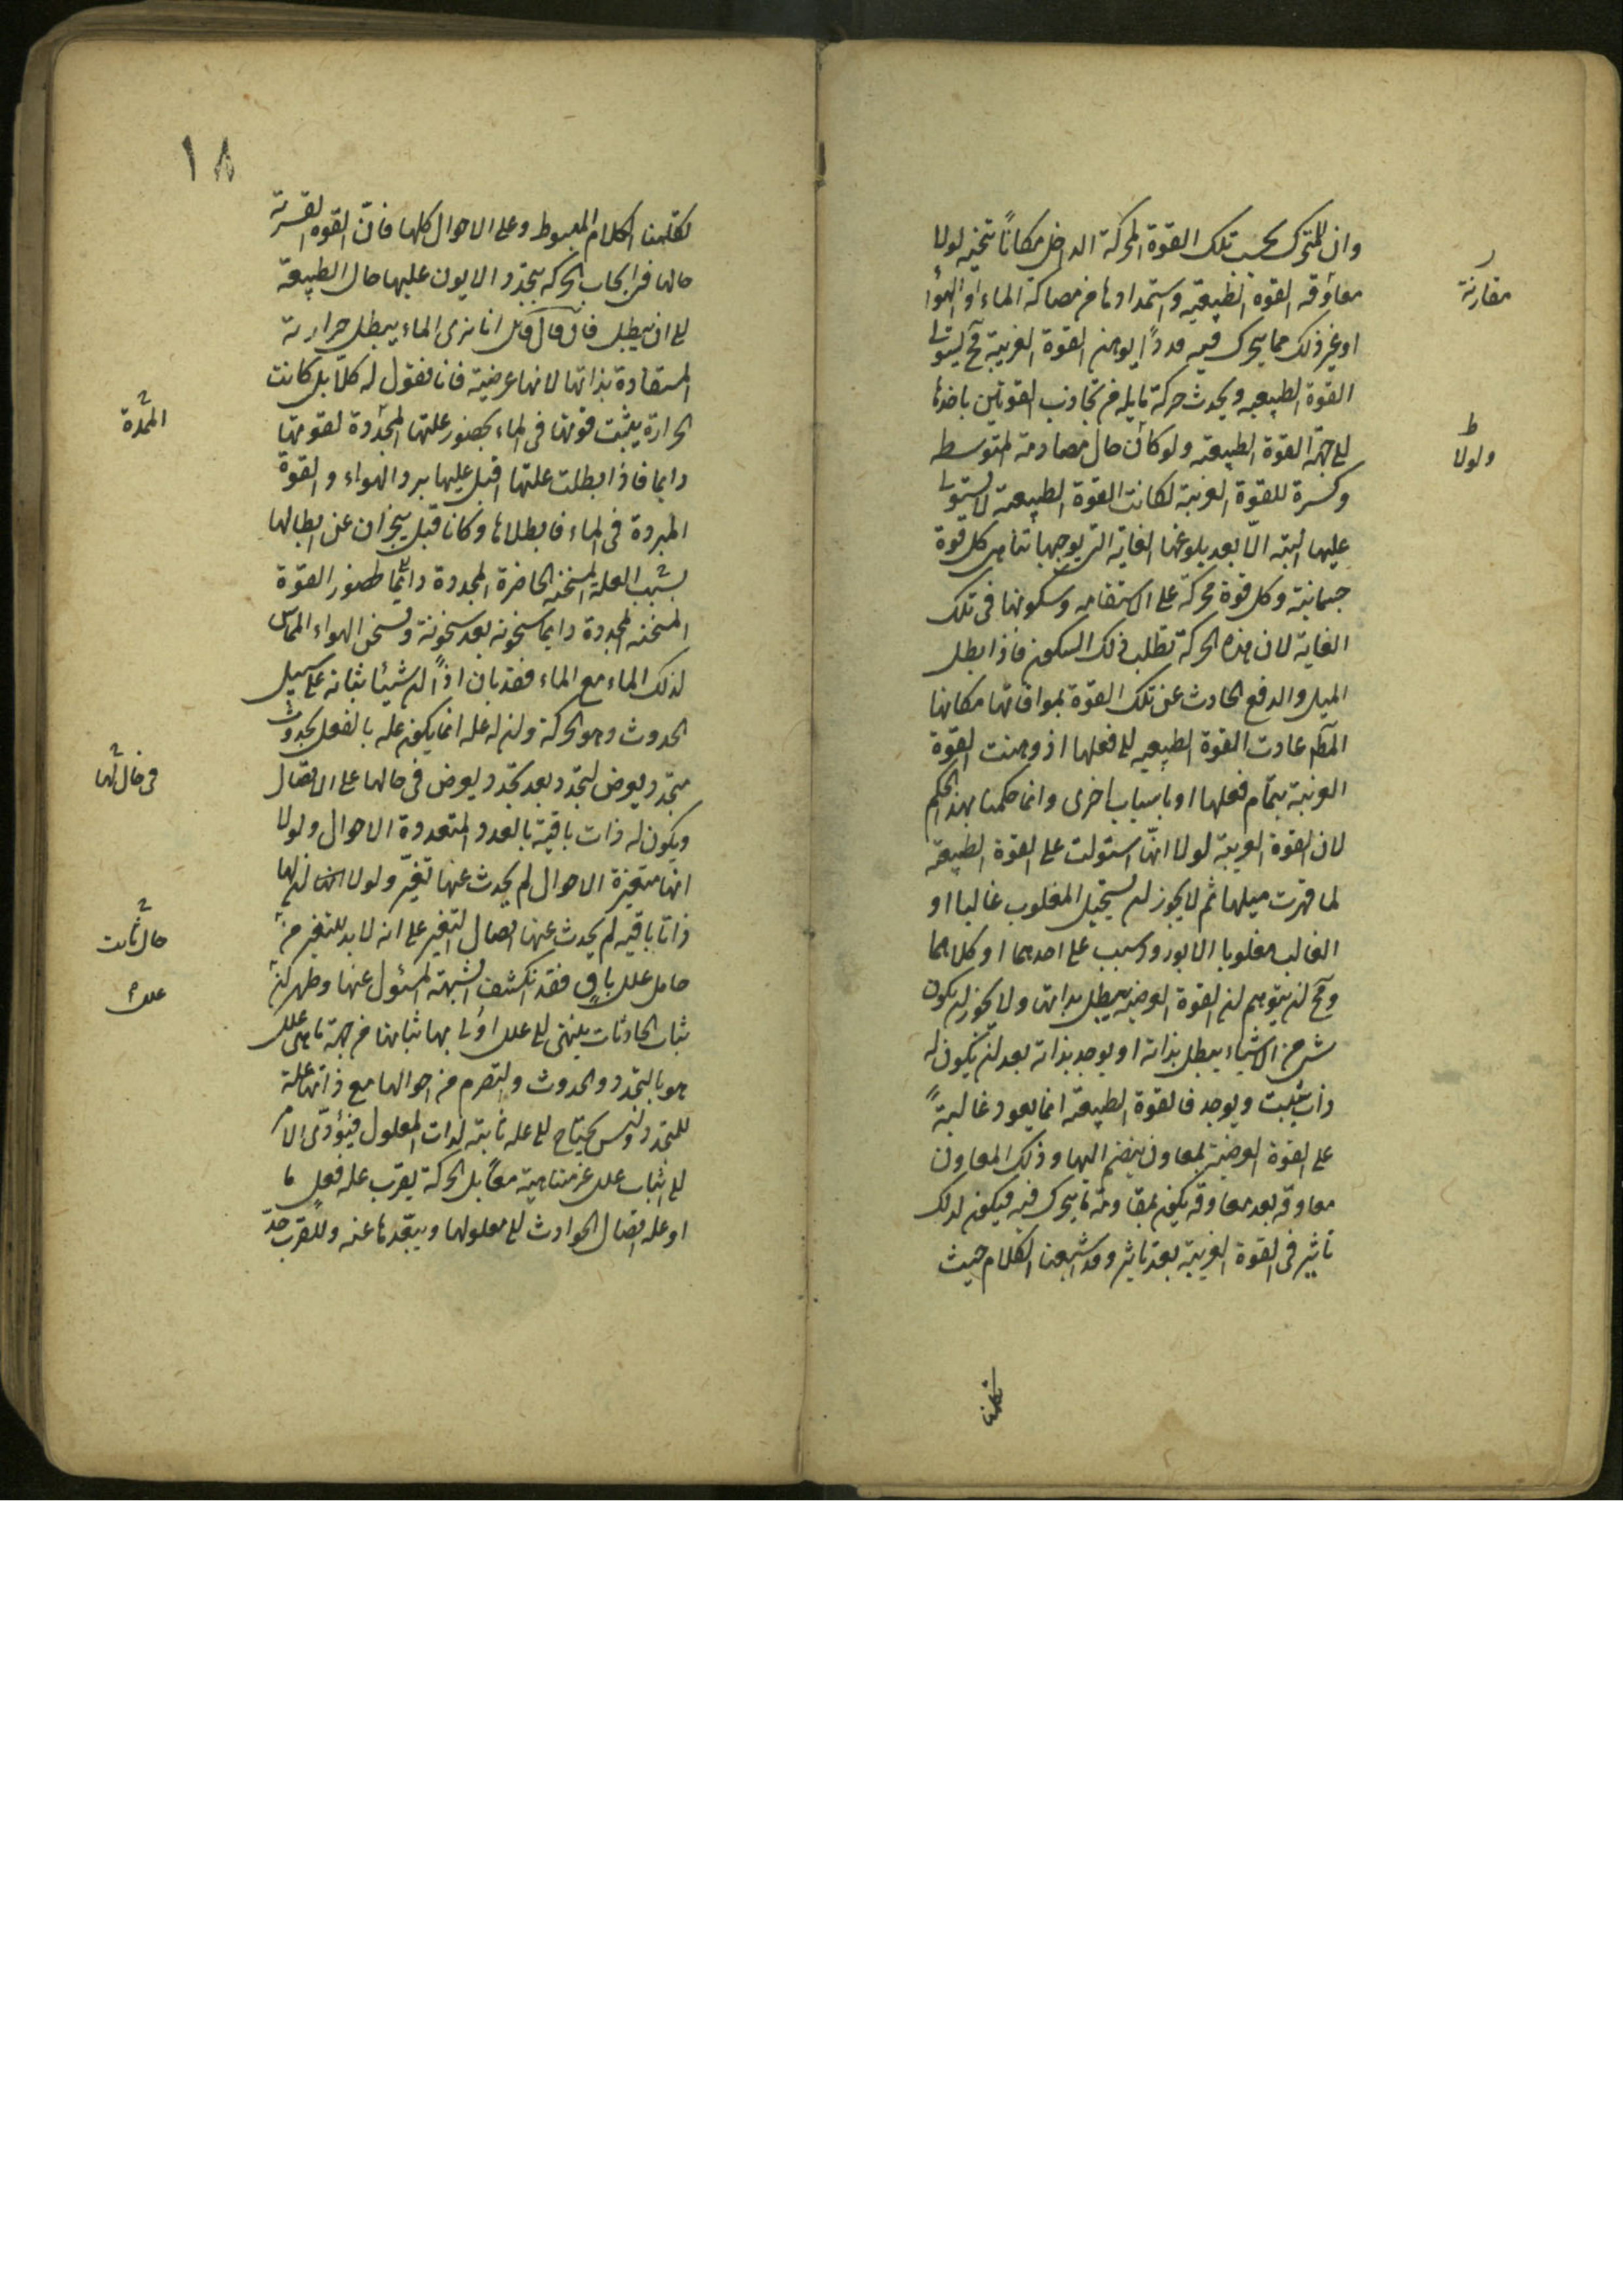 وان للمتحرك بحسب تلك القوة المحركة الداخل مكانا تتحيز لولا
معاوقه القوه الطبيعيه واستمدادها من مصاكة الماء او الهواء
او غير ذلك مما يتحرك فيه مددًا يوهن القوة الغريبة فح يستولى
القوة الطبيعيه ويحدث حركة مايله من تجاذب القوتين باخذها
الى جهة القوة الطبيعيه ولو كان حال مصادمة المتوسط
وكسرة للقوة الغريبة لكانت القوة الطبيعيه لا يستولى
عليها البتة الّا بعد بلوغها الغاية التى يوجبها تناهى كل قوة
جسمانية وكل قوة محركة على الاستقامه وسكونها فى تلك
الغاية لان هذه الحركة تطلب ذلك السكون فاذا بطل
الميل والدفع الحادث عن تلك القوة بموافاتها مكانها
المتمم عادت القوة الطبيعيه الى فعلها اذ وهنت القوة
الغريبة بتمام فعلها او باسباب اخرى وانما حكمنا بهذا الحكم
لان القوة الغريبة لولا انّها استولت على القوة الطبيعيه
لما قهرت ميلها ثم لا يجوز ان يستحيل المغلوب غالبا او
الغالب مغلوبا الا بورود سبب على احدهما او كلاهما
ومح ان يتوهم ان القوة العرضيه يبطل بذاتها ولا يجوز ان يكون
شئ من الاشياء يبطل بذاته او يوجد بذاته بعد ان يكون له
ذات يثبت ويوجد فالقوة الطبيعيه انما يعود غالبةً
على القوة العرضية لمعاون ينضم اليها وذلك المعاون
معاوقه بعد معاوقه يكون بمقاومة ما يتحرك فيه فيكون لذلك
تاثير فى القوة الغريبة بعد تاثير وقد اشبعنا الكلام حيث
تكلمنا
مقارنة
ولولا
١٨
تكلمنا الكلام المبسوط وعلى الاحوال كلها فانّ القوه القسرية
حالها فى ايجاب الحركه بتجدد الايون عليها حال الطبيعة
الى ان يبطل فان قال قائل انا نرى الماء يبطل حرارته
المستفادة بذاتها لانها عرضية فانا نقول له كلّا بل كانت
الحرارة يثبت قوتها فى الماء بحضور علتها المجددة لقوتها
دايما فاذا بطلت علتها اقبل عليها برد الهواء والقوة
المبردة فى الماء فابطلاها وكانا قبل يعجزان عن ابطالها
بسبب العلة المسخنه الحاضرة المجددة دائما لحضور القوة
المسخنه المجددة دايما سخونة بعد سخونة وتسخن الهواء المماس
لذلك الماء مع الماء فقد بان اذاً ان شيئا ثباته على سبيل
الحدوث وهو الحركة وان له علة انما يكون علة بالفعل بحدوث
متجدد يعرض لتجدد بعد تجدد يعرض فى حالها على الاتصال
ويكون له ذات باقية بالعدد المتعددة الاحوال ولولا
انها متغيرة الاحوال لم يحدث عنها تغيّر ولولا ان لها
ذاتا باقيه لم يحدث عنها اتصال التغير على انه لا بد للتغير من
حامل علل باقٍ فقد انكشف الشبهة المسئول عنها وظهر كون
ثبات الحادثات ينتهى الى علل اولى بها ثباتها من جهة ما هى علل
هو بالتجدد والحدوث والتصرم من احوالها مع ذاتها علة
للتجدد وليس يحتاج الى علة ثابتة لذات المعلول فيؤدّى الامر
الى اثبات علل غير متناهية معًا بل الحركة يقرب علة فعل ما
او علة اتصال الحوادث الى معلولها ويبعّدها عنه وللقرب حدّ
المحددة
فى حال لها
حال ثابت
علل